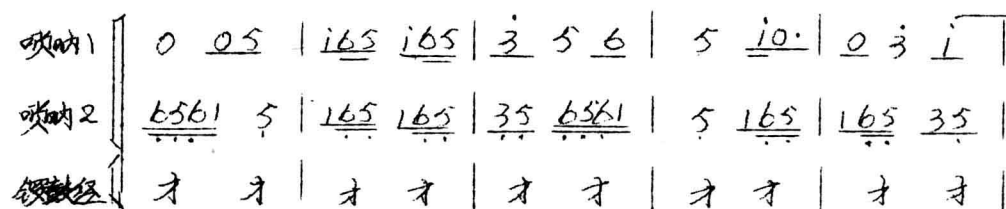 唢呐1 0 05 | i65 i65 | 3 5 6 | 5 i0· | 0 3 i
唢呐2 6561 5 | 165 165 | 35 6561 | 5 165 | 165 35
锣鼓经 才 才 | 才 才 | 才 才 | 才 才 | 才 才